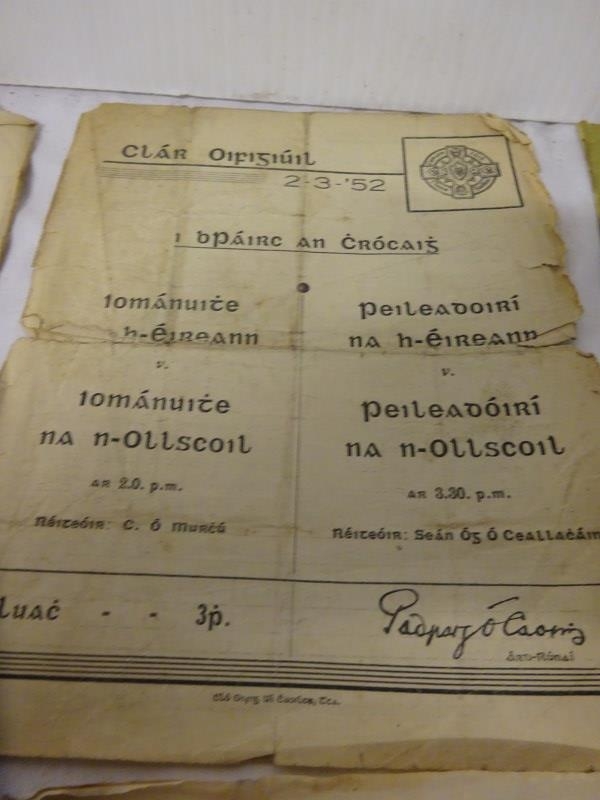 Clár Oifigiúil
2-3-'52
i bPáirc an Ċrócaiġ
Iománuiṫe
h-Éireann
v.
Iománuiṫe
na n-Ollscoil
ar 2.0. p.m.
Réiteóir: C. Ó Murċú
Peileadoirí
na h-Éireann
v.
Peileadóirí
na n-Ollscoil
ar 3.30. p.m.
Réiteóir: Seán Óg Ó Ceallaċáin
Luaċ - - 3p.
Pádraig Ó Caoiṁ
Árd-Rúnaí